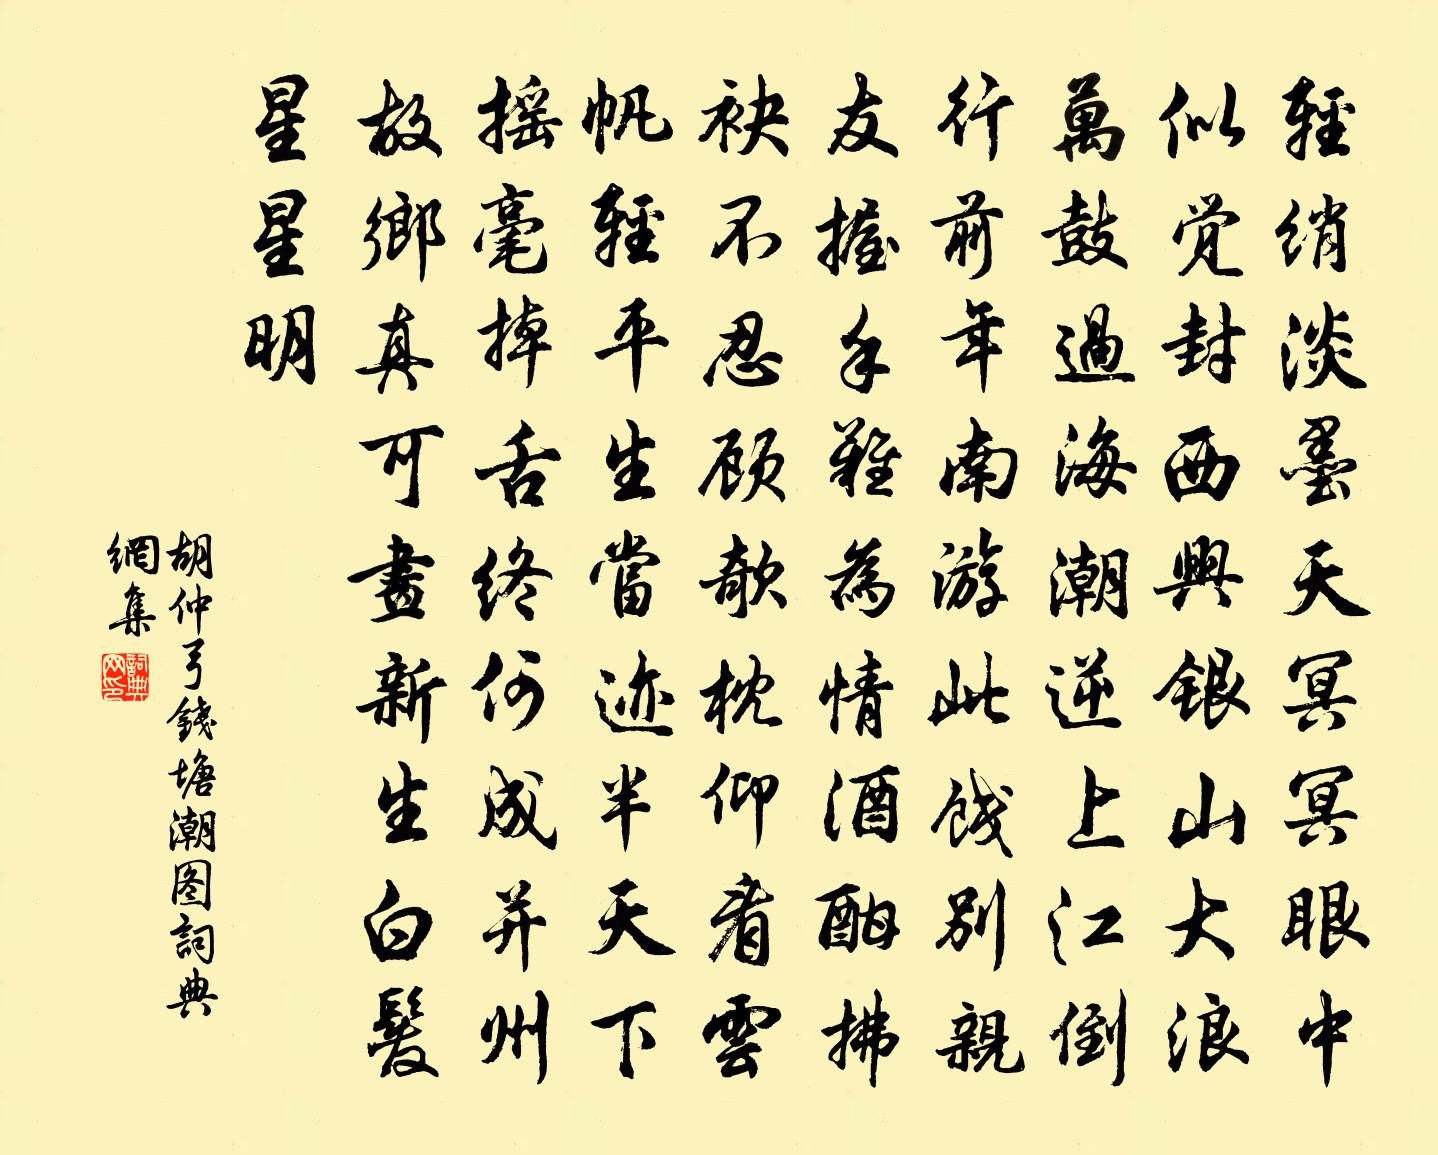 輕綃淡墨天冥冥眼中
似覚封西興銀山大浪
萬鼓過海潮逆上江倒
行前年南游此餞別親
友握手難為情酒酣拂
袂不忍顾欹枕仰看雲
帆輕平生當迹半天下
摇毫掉舌終何成并州
故鄉真可畫新生白髮
星星明
胡仲弓錢塘潮图詞典
網集
詞典
网印